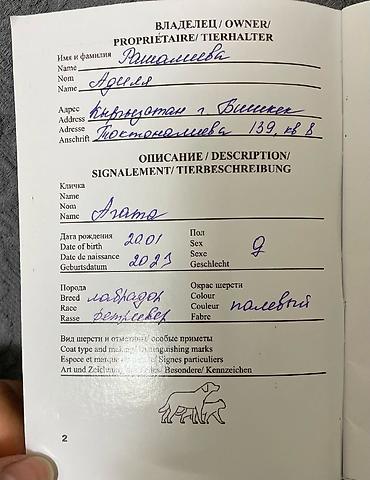 ВЛАДЕЛЕЦ / OWNER/
PROPRIÉTAIRE / TIERHALTER
Имя и фамилия Рашалиева
Name
Nom Аделя
Name
Адрес Кыргызстан г. Бишкек
Address
Adresse Токтоналиева 139, кв 8
Anschrift
ОПИСАНИЕ / DESCRIPTION/
SIGNALEMENT/ TIERBESCHREIBUNG
Кличка
Name
Nom
Name Агата
Дата рождения 2001 Пол
Date of birth Sex
Date de naissance 2023 Sexe
Geburtsdatum Geschlecht
Порода Окрас шерсти
Breed лабрадор Colour
Race Couleur палевый
Rasse ретривер Fabre
Вид шерсти и особые приметы
Coat type and marks
Espece et Signes particuliers
Art und Besondere/ Kennzeichen
2